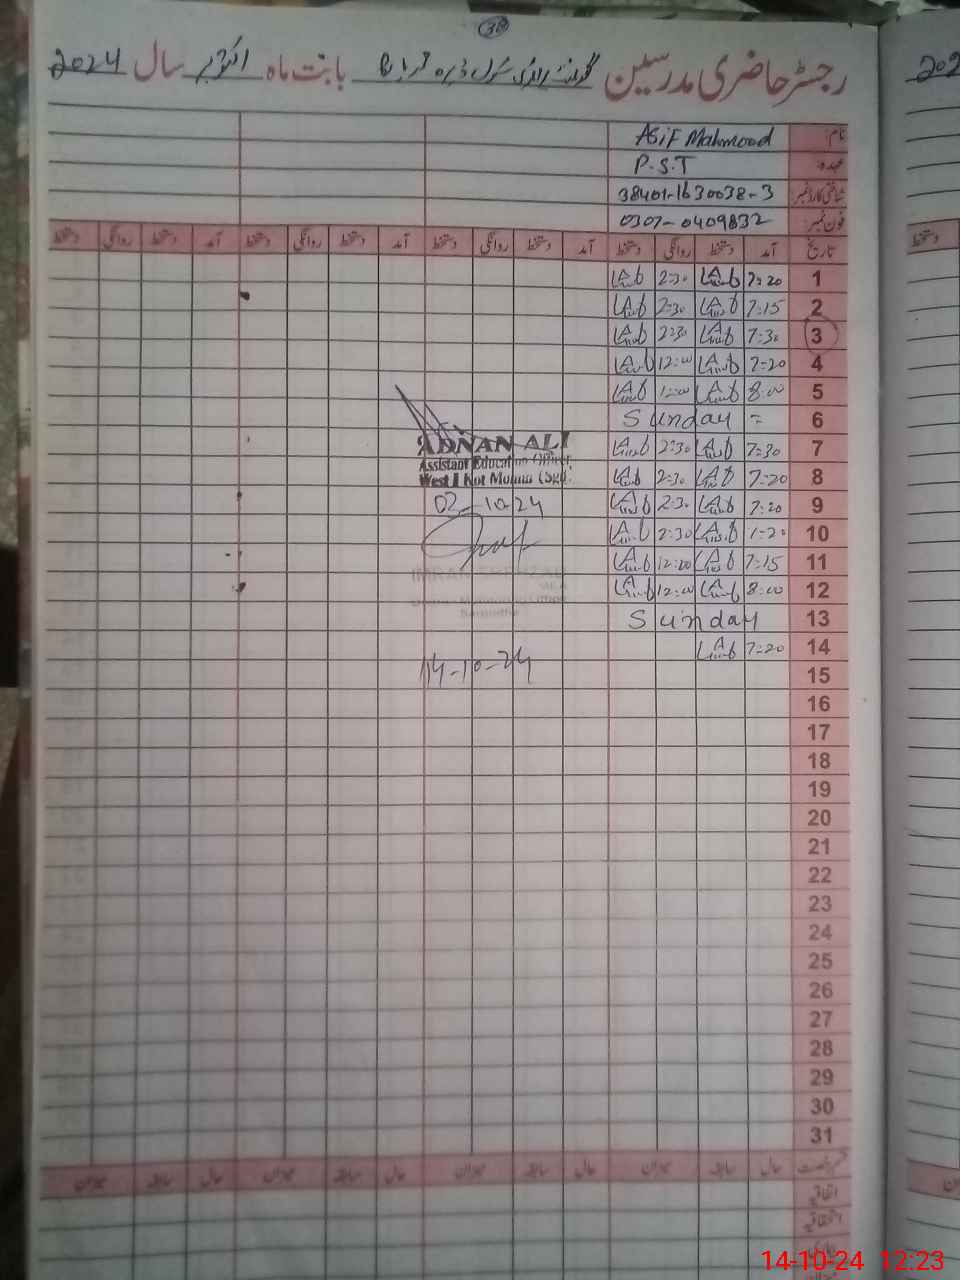 38
رجسٹر حاضری مدرسین گورنمنٹ پرائمری سکول ڈیرہ بابت ماہ اکتوبر سال 2024
202
نام: Asif Mahmood
عہدہ: P.S.T
شناختی کارڈ نمبر: 38401-1630038-3
فون نمبر: 0307-0409832
تاریخ آمد دستخط روانگی دستخط آمد دستخط روانگی دستخط آمد دستخط روانگی دستخط آمد دستخط روانگی دستخط
دستخط
1 7=20 2=30
2 7=15 2=30
3 7=30 2=30
4 7=20 12=00
5 8=00 1=00
6 Sunday =
7 7=30 2=30
8 7=20 2=30
9 7=20 2=30
10 1-20 2=30
11 7=15 12=00
12 8=00 12=00
13 Sunday
14 7=20
15
16
17
18
19
20
21
22
23
24
25
26
27
28
29
30
31
ADNAN ALI
Assistant Education Officer
West I Kot Momin (Sgd).
02-10-24
IMRAN SHEHZAD
MEA
Sargodha
14-10-24
قسم رخصت حال سابقہ میزان حال سابقہ میزان حال سابقہ میزان حال سابقہ میزان
اتفاقیہ
استحقاقیہ
بیماری
14-10-24 12:23